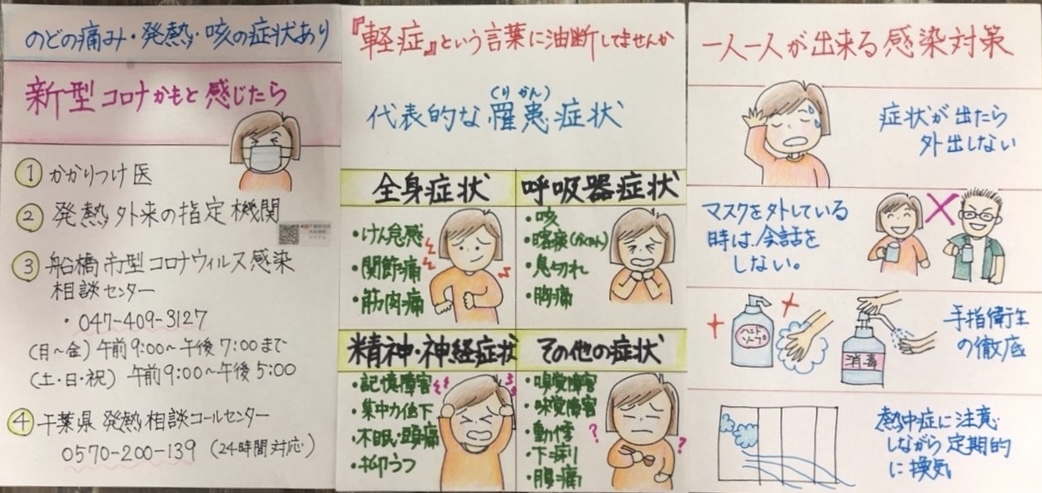 のどの痛み・発熱・咳の症状あり
新型コロナかもと感じたら
① かかりつけ医
② 発熱外来の指定機関
③ 船橋市型コロナウィルス感染
相談センター
・047-409-3127
(月〜金)午前9:00〜午後7:00まで
(土・日・祝)午前9:00〜午後5:00
④ 千葉県発熱相談コールセンター
0570-200-139(24時間対応)
『軽症』という言葉に油断してませんか
代表的な罹患症状
(りかん)
全身症状
・けん怠感
・関節痛
・筋肉痛
呼吸器症状
・咳
・喀痰(かくたん)
・息切れ
・胸痛
精神・神経症状
・記憶障害
・集中力低下
・不眠・頭痛
・抑うつ
その他の症状
・嗅覚障害
・味覚障害
・動悸
・下痢
・腹痛
一人一人が出来る感染対策
症状が出たら
外出しない
マスクを外している
時は、会話を
しない。
ハンド
ソープ
消毒
手指衛生
の徹底
熱中症に注意
しながら定期的
に換気